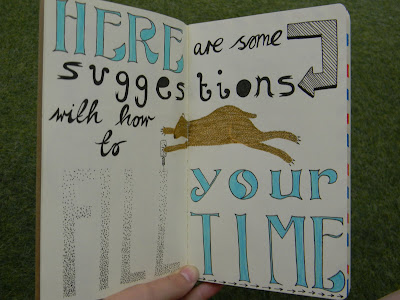 HERE are some
suggestions
with how
to
FILL your
TIME